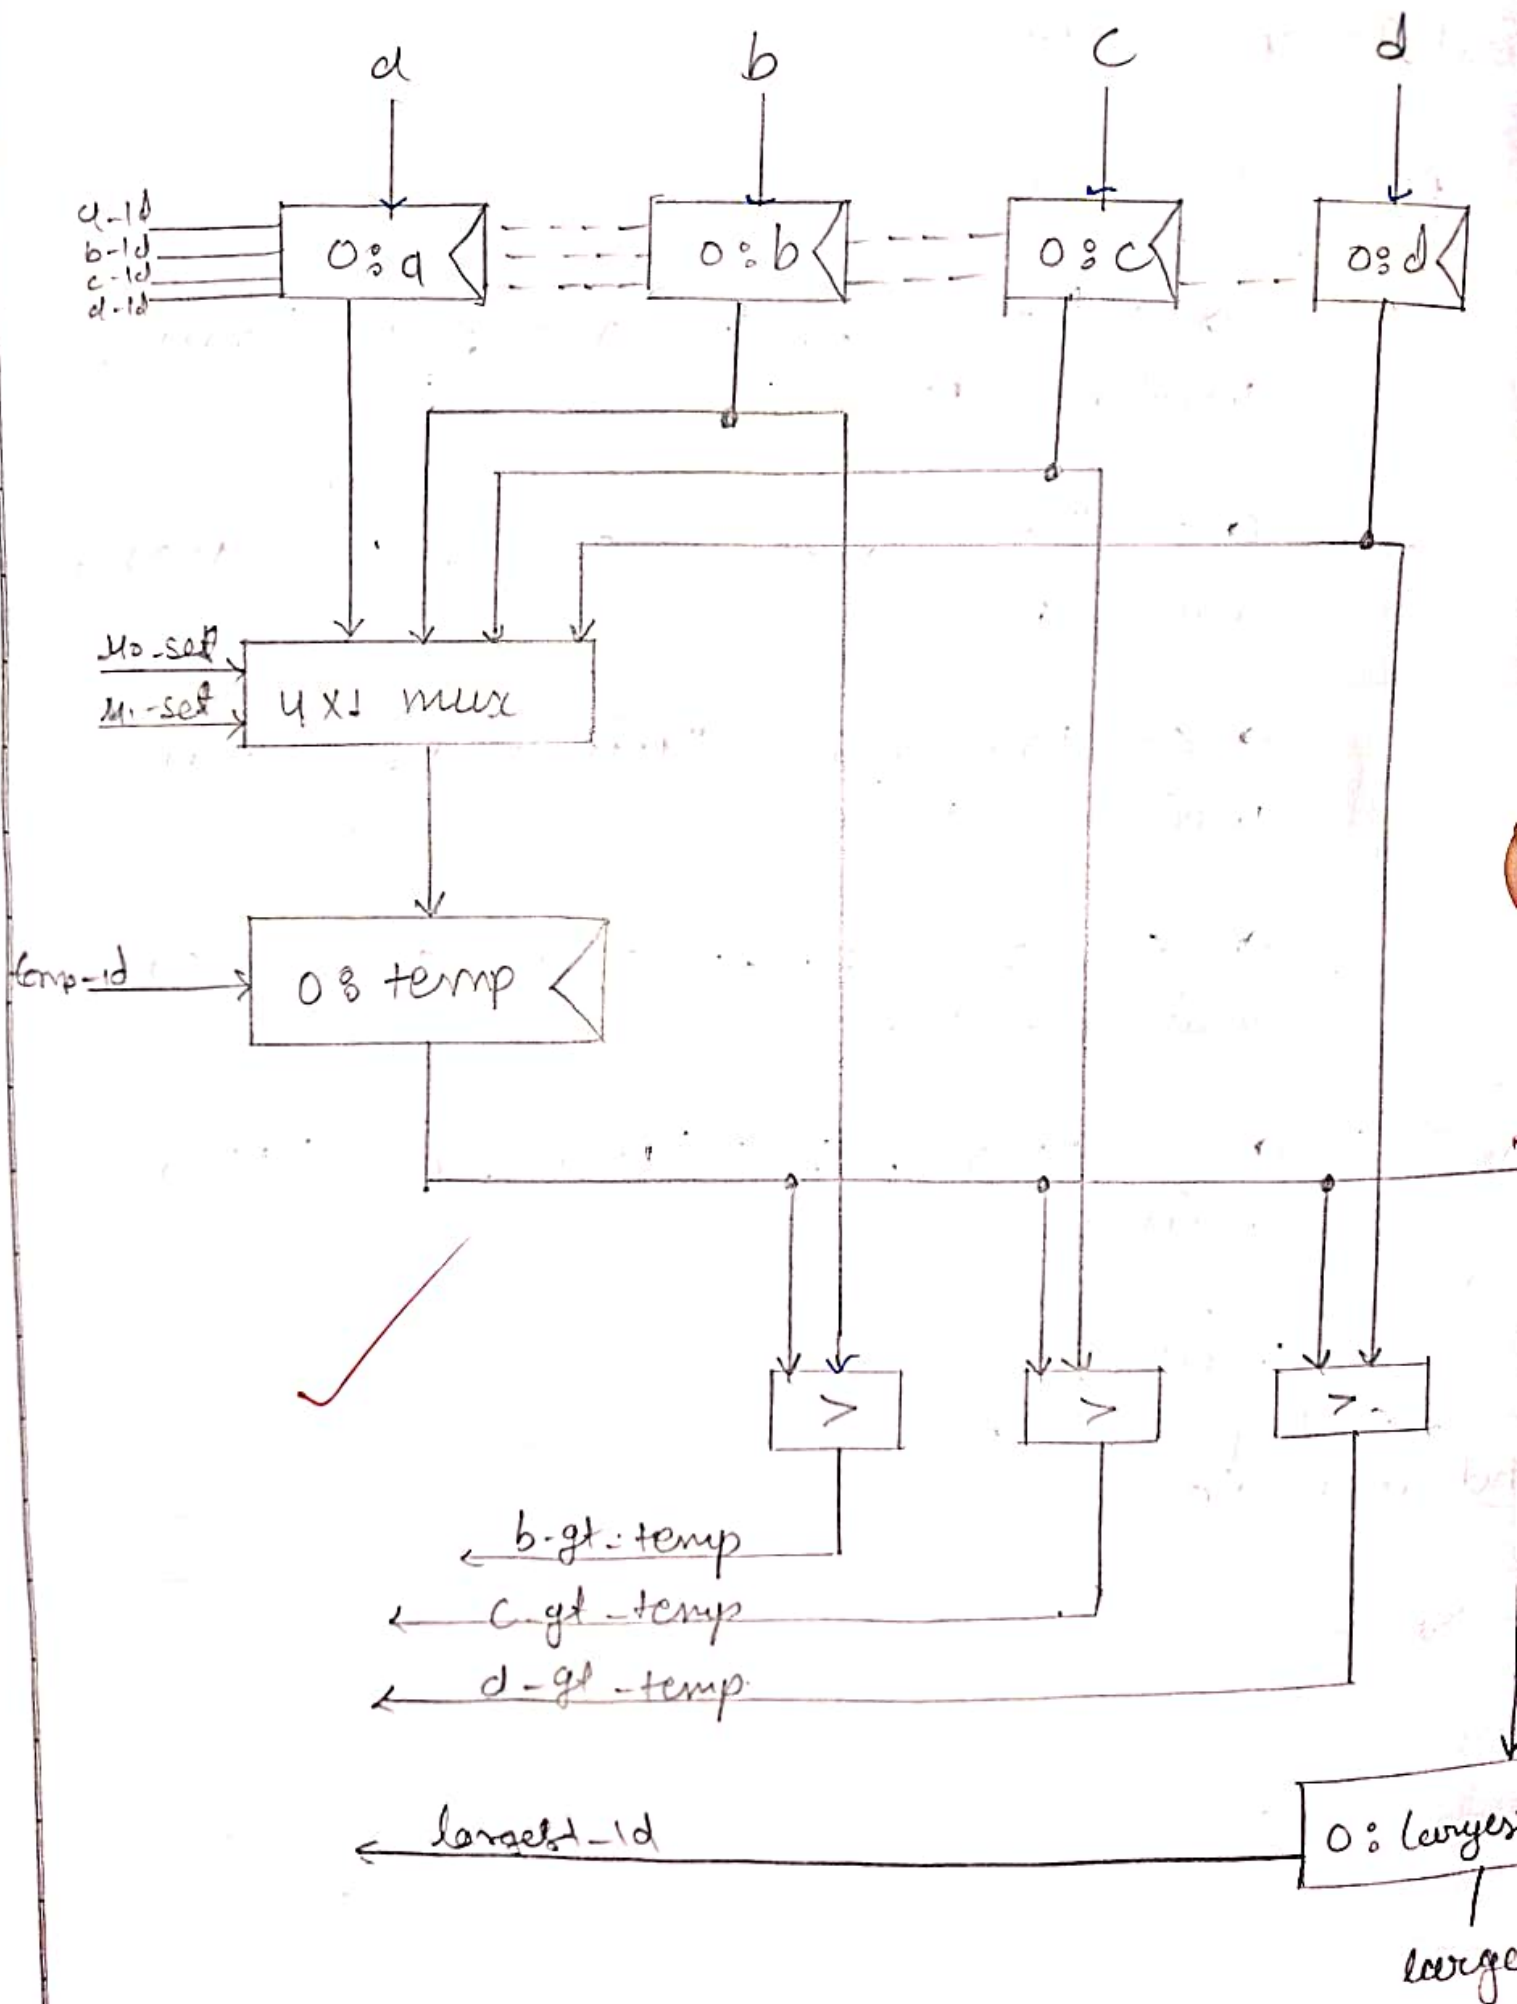 a b c d
a-ld
b-ld
c-ld
d-ld
0:a 0:b 0:c 0:d
M0-sel
M1-sel
4x1 mux
temp-ld
0: temp
> > >
b-gt-temp
c-gt-temp
d-gt-temp
largest-ld
0: larges
large